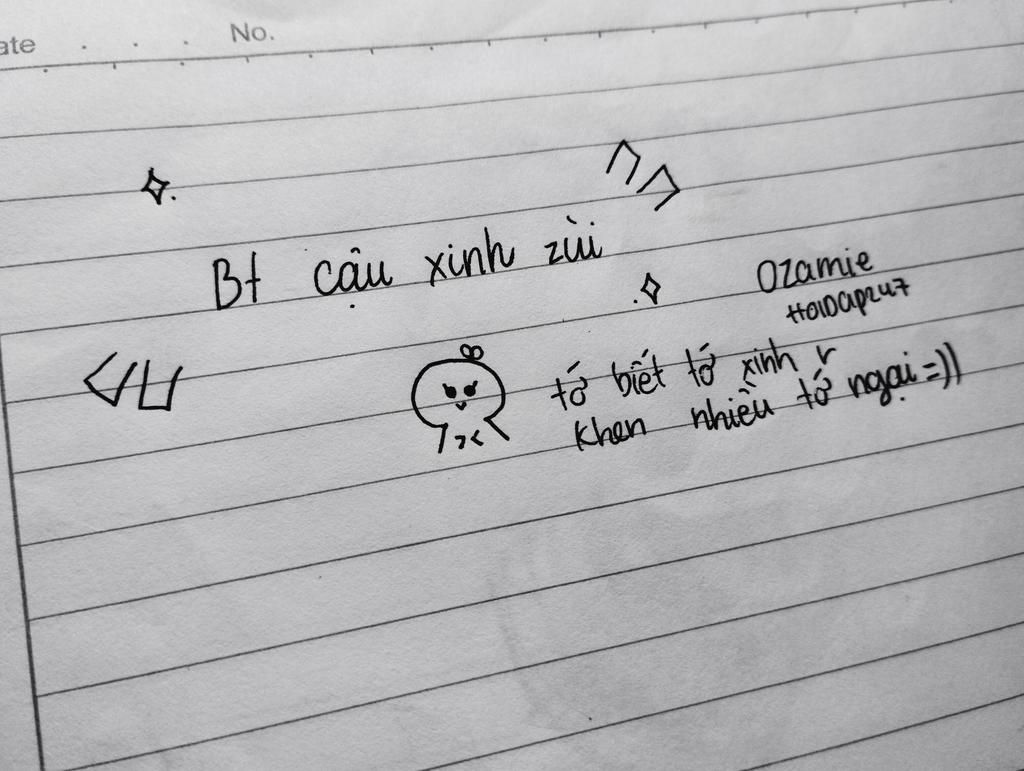 ate No.
Bt cậu xinh zùi
Ozamie
HOIDAP247
tớ biết tớ xinh r
khen nhiều tớ ngại =))